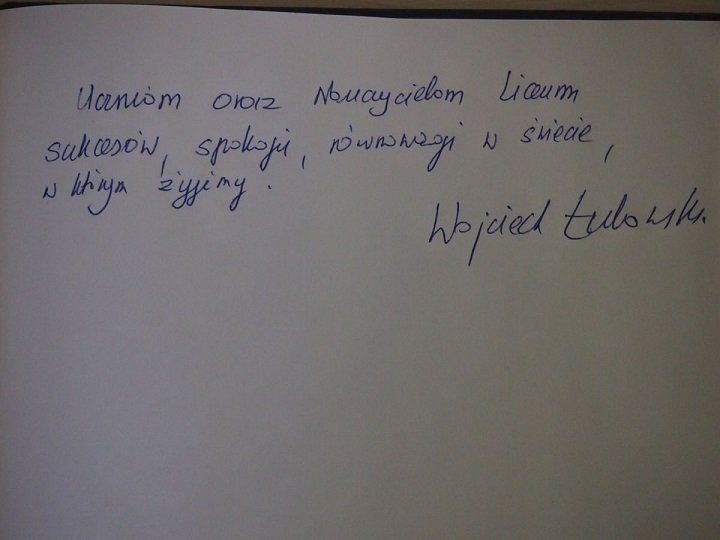 Uczniom oraz Nauczycielom Liceum
sukcesów, spokoju, równowagi w świecie,
w którym żyjemy.
Wojciech